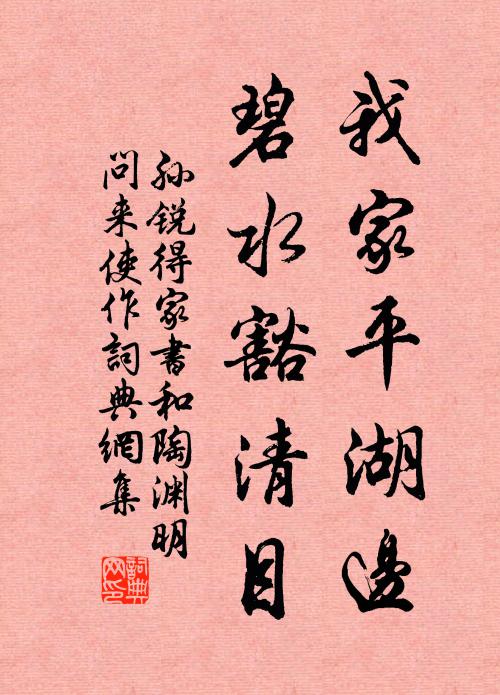 我家平湖邊
碧水豁清目
孙锐得家書和陶渊明
问来使作詞典網集
詞典网印